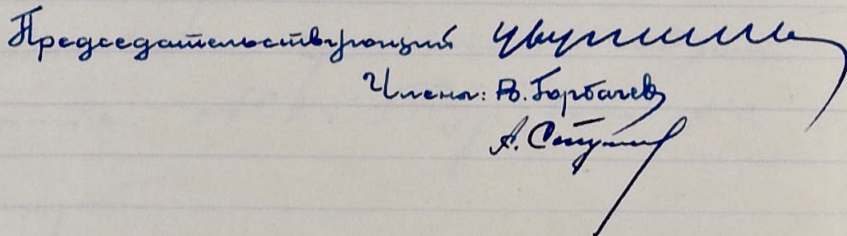 Председательствующий
Члены: В. Горбачев
А.